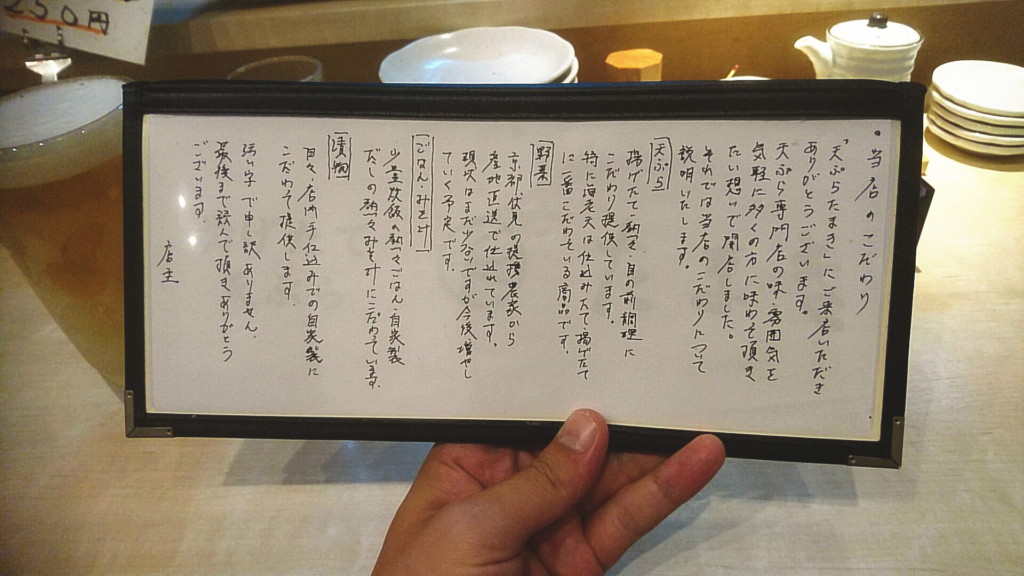 250円
・当店のこだわり
「天ぷらたまき」にご来店いただき
ありがとうございます。
天ぷら専門店の味・雰囲気を
気軽に多くの方に味わって頂き
たい想いで開店しました。
それでは当店のこだわりについて
説明いたします。
天ぷら
揚げたて・熱々・目の前調理に
こだわり提供しています。
特に海老天は仕込みたて揚げたて
に一番こだわっている商品です。
野菜
京都伏見の提携農家から
産地直送で仕込れています。
現状はまだ少ないですが今後増やし
ていく予定です。
ごはん・みそ汁
少量炊飯の熱々ごはん・自家製
だしの熱々みそ汁にこだわっています。
漬物
日々、店内手仕込みでの自家製に
こだわって提供します。
汚い字で申し訳ありません。
最後まで読んで頂きありがとう
ございます。
店主